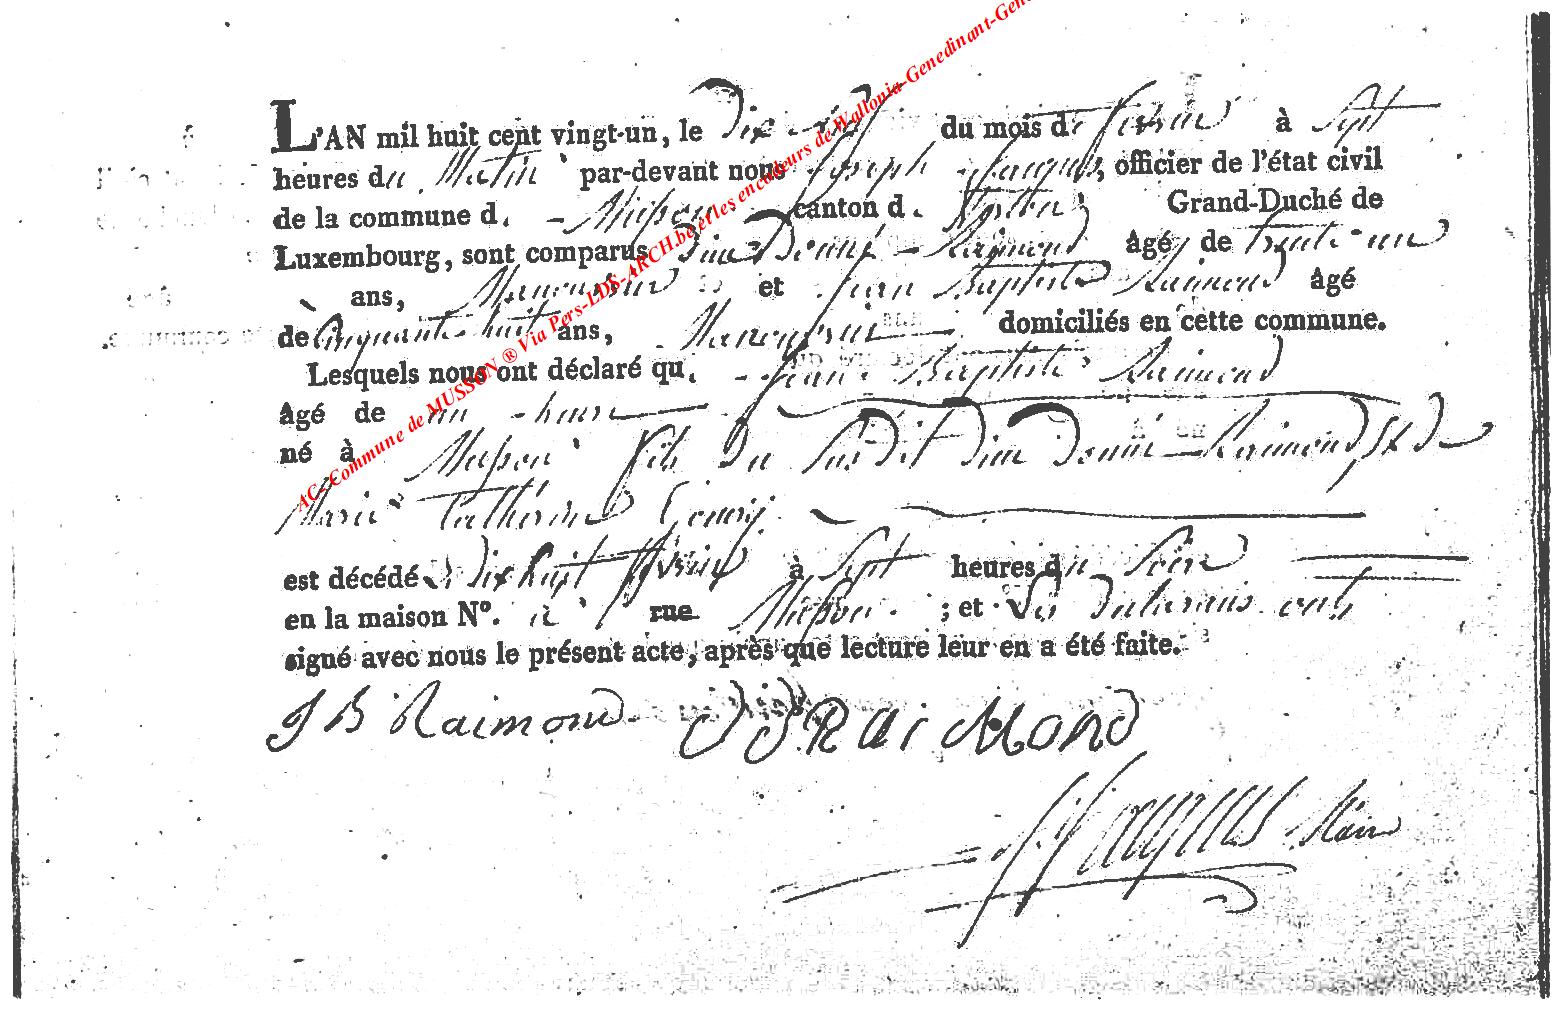 L'AN mil huit cent vingt-un, le Dix du mois de février à Sept
heures du Matin par-devant nous Joseph Jacques, officier de l'état civil
de la commune d. Musson canton d. Grand-Duché de
Luxembourg, sont comparus Dieu Donné Raimond âgé de trente un
ans, Manoeuvre et Jean Baptiste Raimond âgé
de Cinquante huit ans, Manoeuvre domiciliés en cette commune.
Lesquels nous ont déclaré qu. Jean Baptiste Raimond
âgé de un heure
né à Musson fils du Susdit dieu donné Raimond, et de
Marie Catherine
est décédé Dix huit février à Sept heures du Soir
en la maison N°. à rue Musson ; et les declarans ont
signé avec nous le présent acte, après que lecture leur en a été faite.
J B Raimond RaiMond
J Jacques Maire
AC- Commune de MUSSON ® Via Pers-LDS-ARCH.be et les encodeurs de Wallonia-Genedinant-Gen